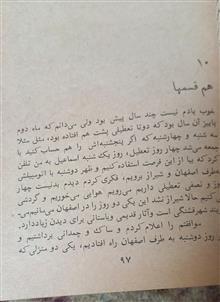 ۱۰
هم قسمها
خوب یادم نیست چند سال پیش بود ولی می‌دانم که ماه دوم
پاییز آن سال بود که دوتا تعطیلی پشت هم افتاده بود، مثل مثلا
سه شنبه و چهارشنبه که اگر پنجشنبه‌اش را هم حساب کنید با
جمعه می‌شد چهار روز تعطیل، روز یک شنبه اسماعیل به من تلفن
کرد که بیا از این فرصت استفاده کنیم و ظهر دوشنبه با اتومبیلش
بطرف اصفهان و شیراز برویم، فکری کردم دیدم بدنیست چهار
روز و نصفی تعطیلی داریم می‌رویم هوایی می‌خوریم و گردشی
می کنیم حالا شیراز نشد این یکی دو روز را در اصفهان می‌مانیم
بد شهر قشنگی است وآثار قدیمی وباستانی برای دیدن زیاددارد.
موافقتم را اعلام کردم و ساک و چمدانی برداشتیم و
روز دوشنبه به طرف اصفهان راه افتادیم، یکی دو منزلی که
۹۷